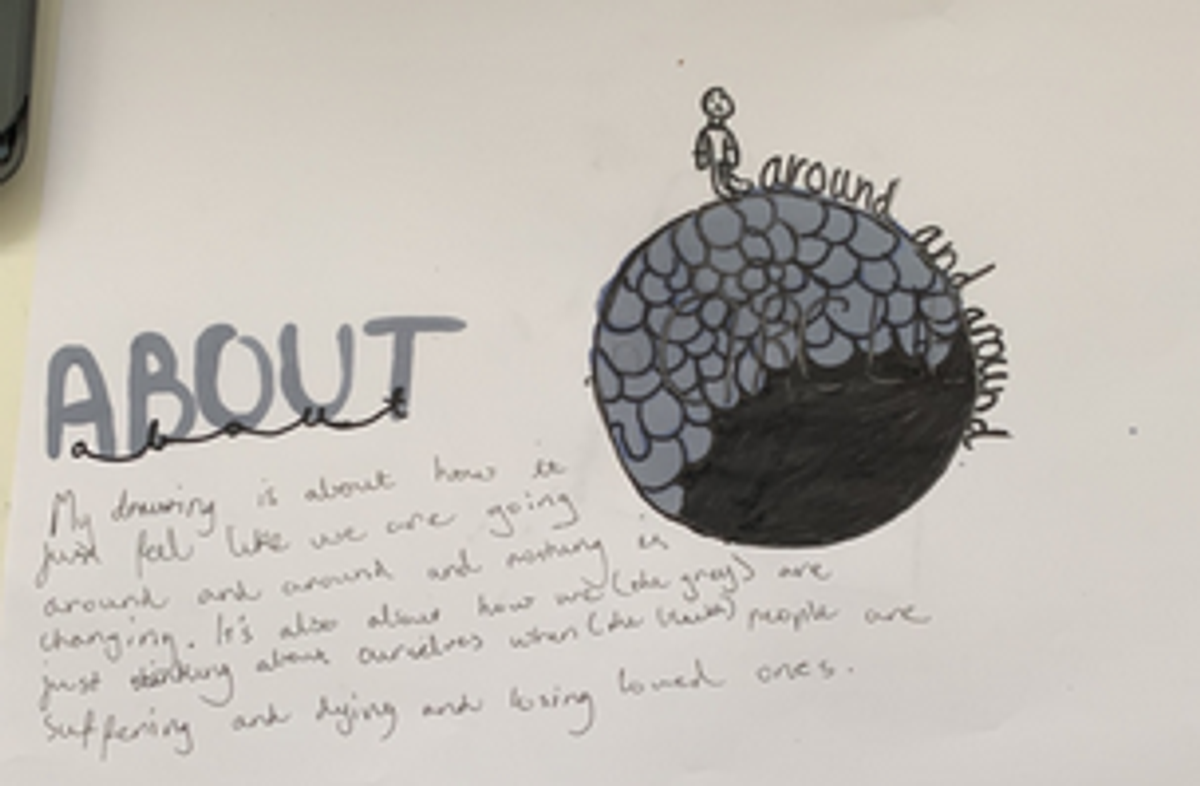 around and around
ABOUT
about
My drawing is about how it
just feel like we are going
around and around and nothing is
changing. It's also about how we (the grey) are
just thinking about ourselves when (the black) people are
suffering and dying and losing loved ones.